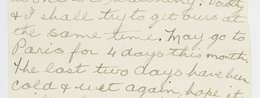 & I shall try to get ours at
the same time. May go to
Paris for 4 days this month.
The last two days have been
cold & wet again, hope it